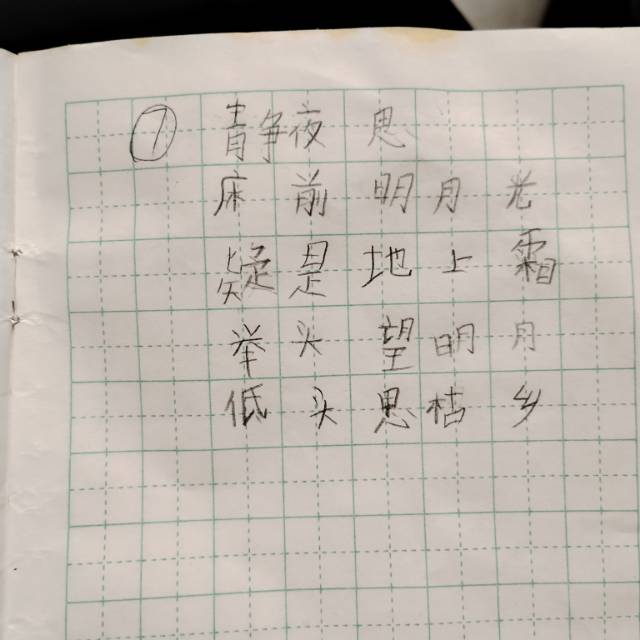 ① 静夜思
床前明月光
疑是地上霜
举头望明月
低头思枯乡